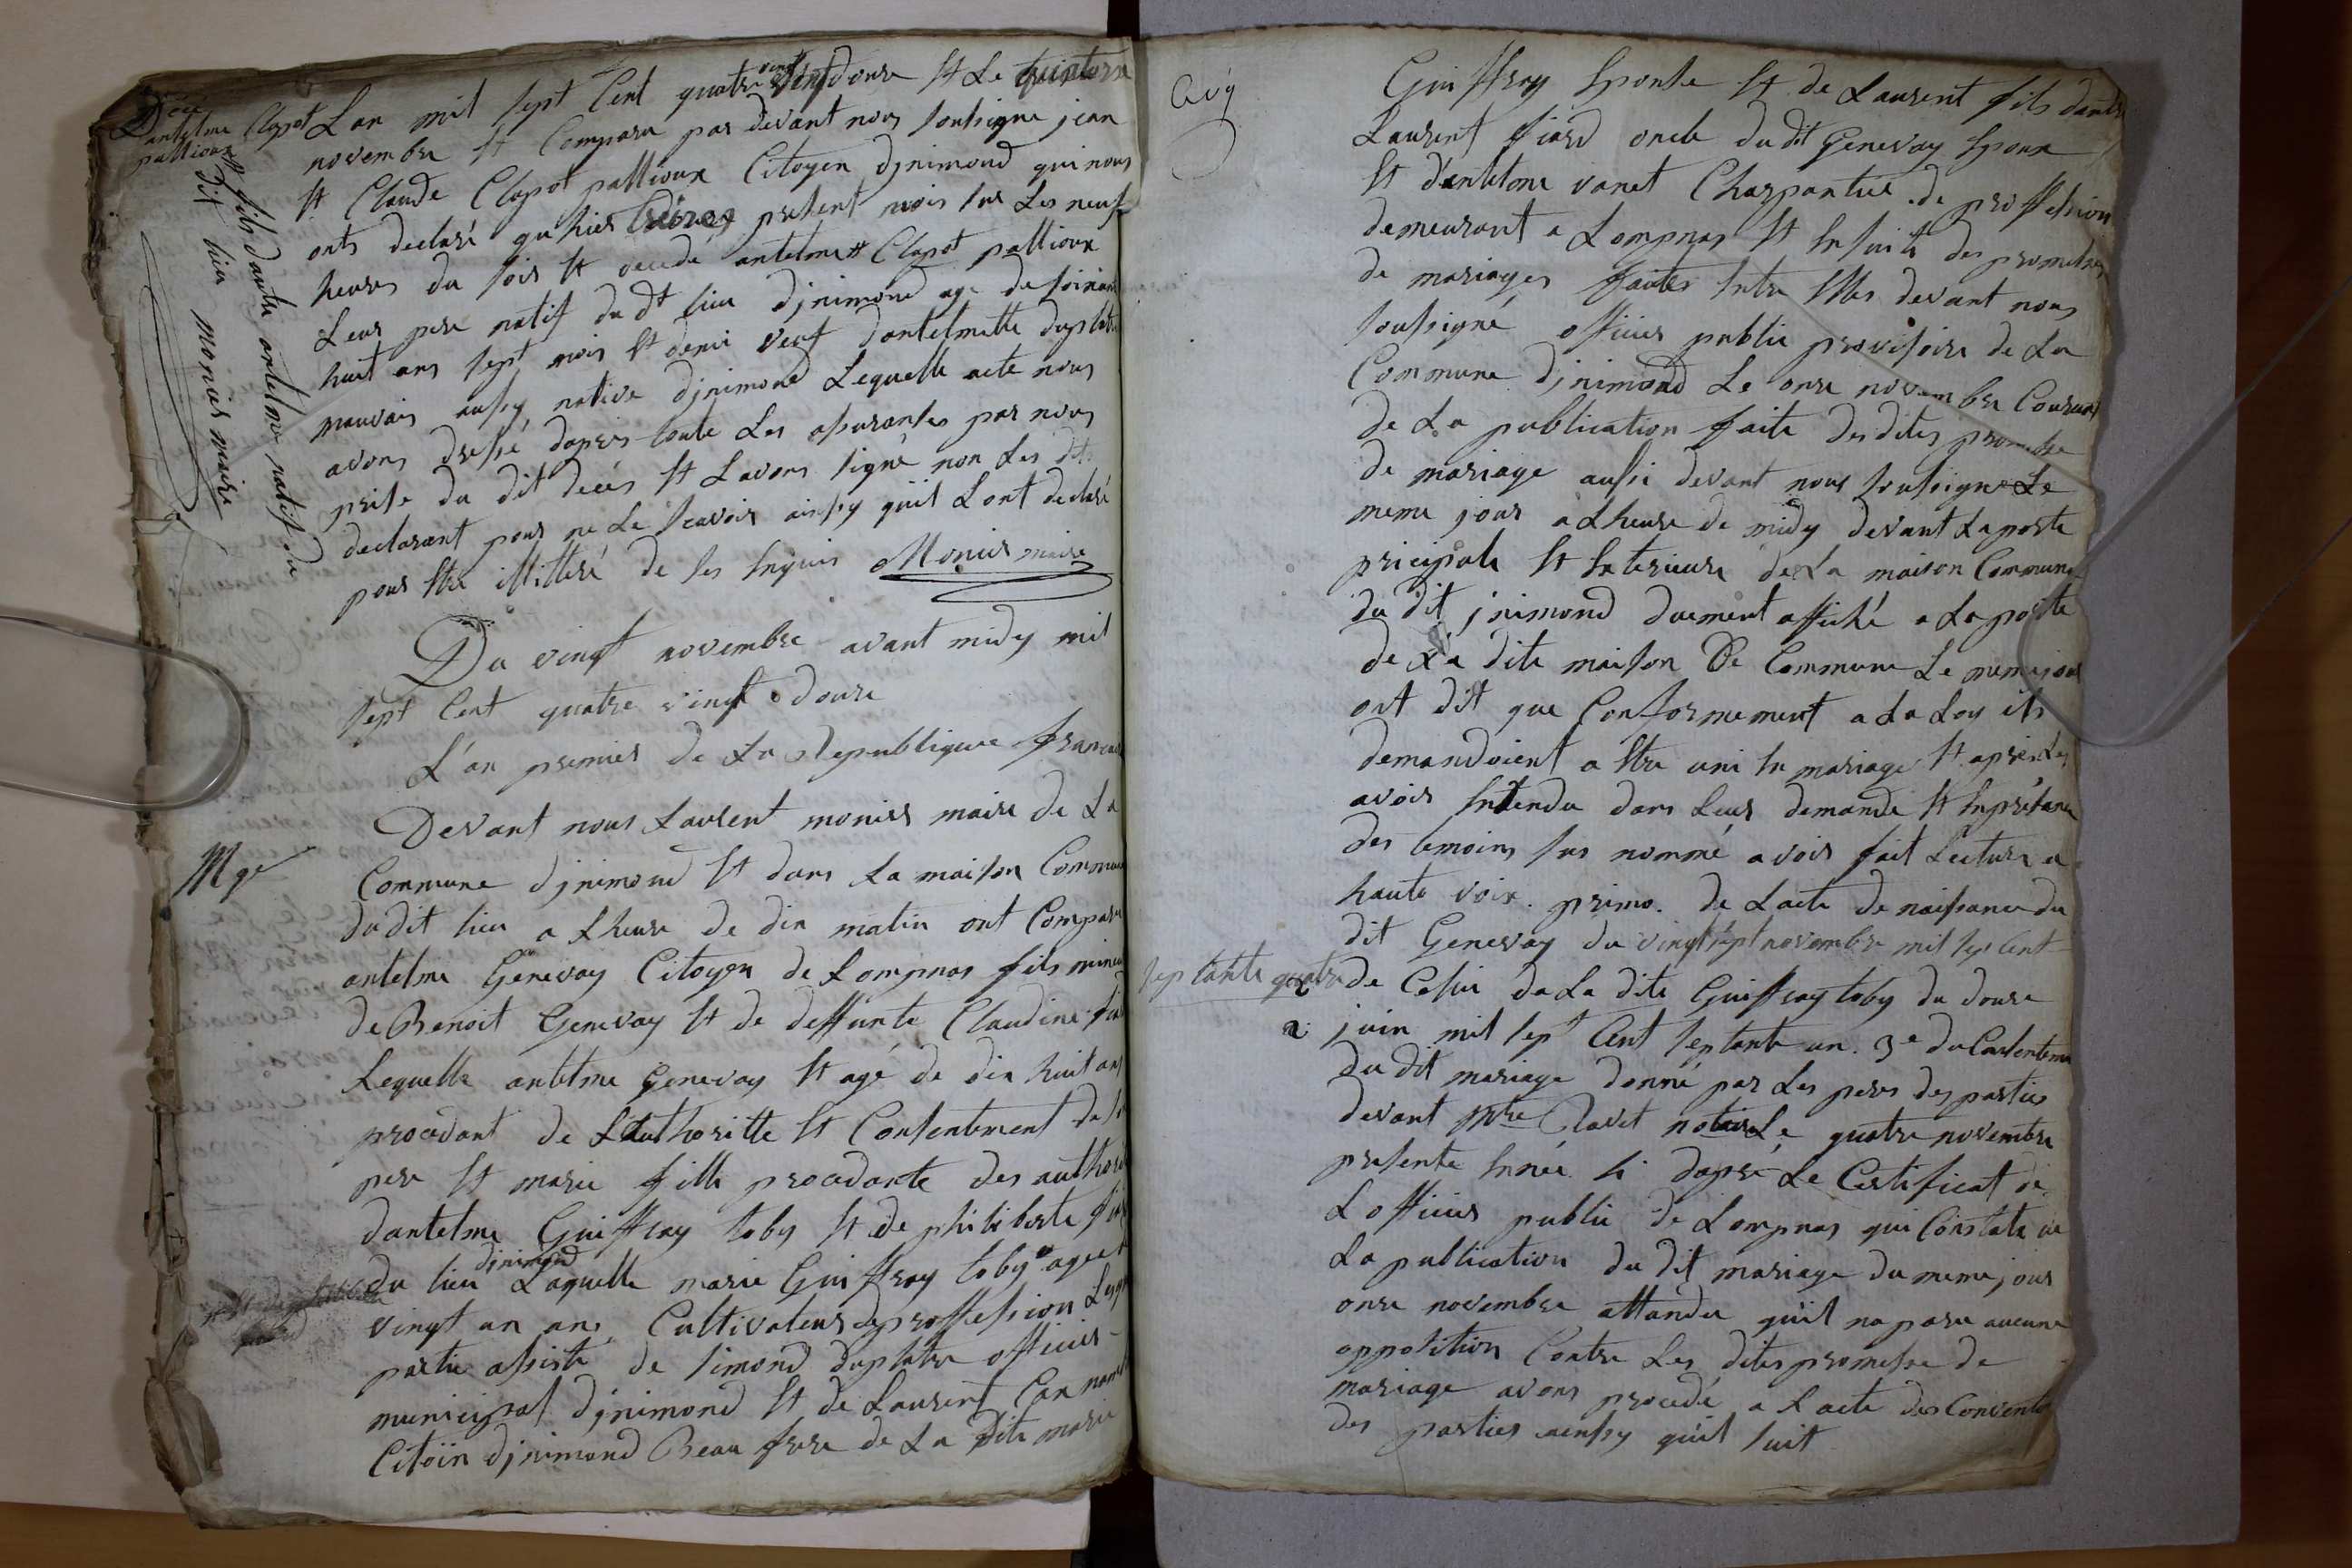 Déce
antelme Clapot
pallioux
Lan mil sept Cent quatre vingt douse Et Le
novembre Et Comparu par devant nous soulsigne jean
Et Claude Clapot pallioux Citoyen djnimond qui nous
onts declaré qu hier present mois sur Les neuf
heures du soir Et decedé antelme # Clapot pallioux
Leur pere natif du dt lieu djnimond age de soixante
huit ans sept mois Et demi veuf dantelmette duplatre
mauvais aussy native djnimond Lequelle acte nous
avons dressé dapres toute Les assuranses par nous
prise du dit decés Et Lavons signé non Les dts
declarant pour ne Le scavoir ainssy quil Lont declaré
pour Etre illitteré de ses Enquis Monier maire
# fils dautre antelme natif du
dit lieu monier maire
Du vingt novembre avant midy mil
sept Cent quatre vingt douse
L'an premier de La Republique francaise
Mge
Devant nous Laurent monier maire de La
Commune djnimond Et dans La maison Commune
du dit lieu a Lheure de dix matin ont Comparu
antelme Genevay Citoyen de Lompnas fils mineur
de Benoit Genevay Et de deffunte Claudine
Lequelle antelme Genevay Et agé de dix huit ans
procedant de Lauthoritte Et Consentement de son
pere Et marie fille procedante des authorité
dantelme Guiffray toby Et de philiberte
du lieu djnimond Laquelle marie Guiffray toby agee
vingt un ans Cultivateur de proffession
partie assisté de simond duplatre officier
municipal djnimond Et de Laurent
Citoïin djnimond Beau frere de La dite marie
Guiffray Eponse Et de Laurent fils dautre
Laurent fiard oncle du dit Genevay Epoux
Et dantelme vanet Charpantier de proffession
demeurant a Lompnas Et Ensuite des promesses
de mariages faites Entre Elles devant nous
soulsigné officier public provisoire de La
Commune djnimond Le onse novembre Courant
de La publication faite des dites promesse
de mariage aussi devant nous soulsigne Le
meme jour a Lheure de midy devant La porte
pricipale Et Exterieure de La maison Commune
du dit jnimond duement affiché a La porte
de La dite maison De Commune Le meme jour
ont dit que Conformement a La Loy ils
demandoient a Etre uni En mariage Et apres Les
avoir Entendu dans Leur demande Et Enprésance
des temoins sus nommé avoir fait Lecture a
haute voix. primo. de Lacte de naissance du
dit Genevay du vingt sept novembre mil sep Cent
septante quatre de Celui de La dite Guiffray toby du douse
2. juin mil sept Cent septante un. 3e du Consentement
du dit mariage donné par Les peres des parties
devant Mtre Ravet notaire Le quatre novembre
presente Année. Et dapré Le Certificat de
Lofficier public de Lompnas qui Constate
La publication du dit mariage du meme jour
onse novembre attandu quil na paru aucune
opposition Contre Les dites promesse de
mariage avons procedé a Lacte des Convente
des parties ainssy quil suit